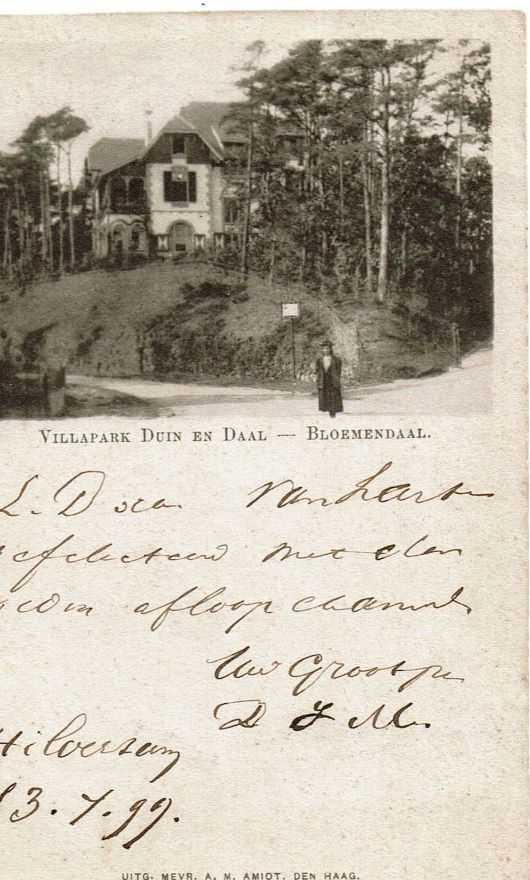 VILLAPARK DUIN EN DAAL — BLOEMENDAAL.
L. Dora. Van harte
efeliciteerd met den
oeden afloop examen
Uw Grootpa
D J M.
Hilversum
13.7.99.
UITG. MEVR. A. M. AMIOT. DEN HAAG.